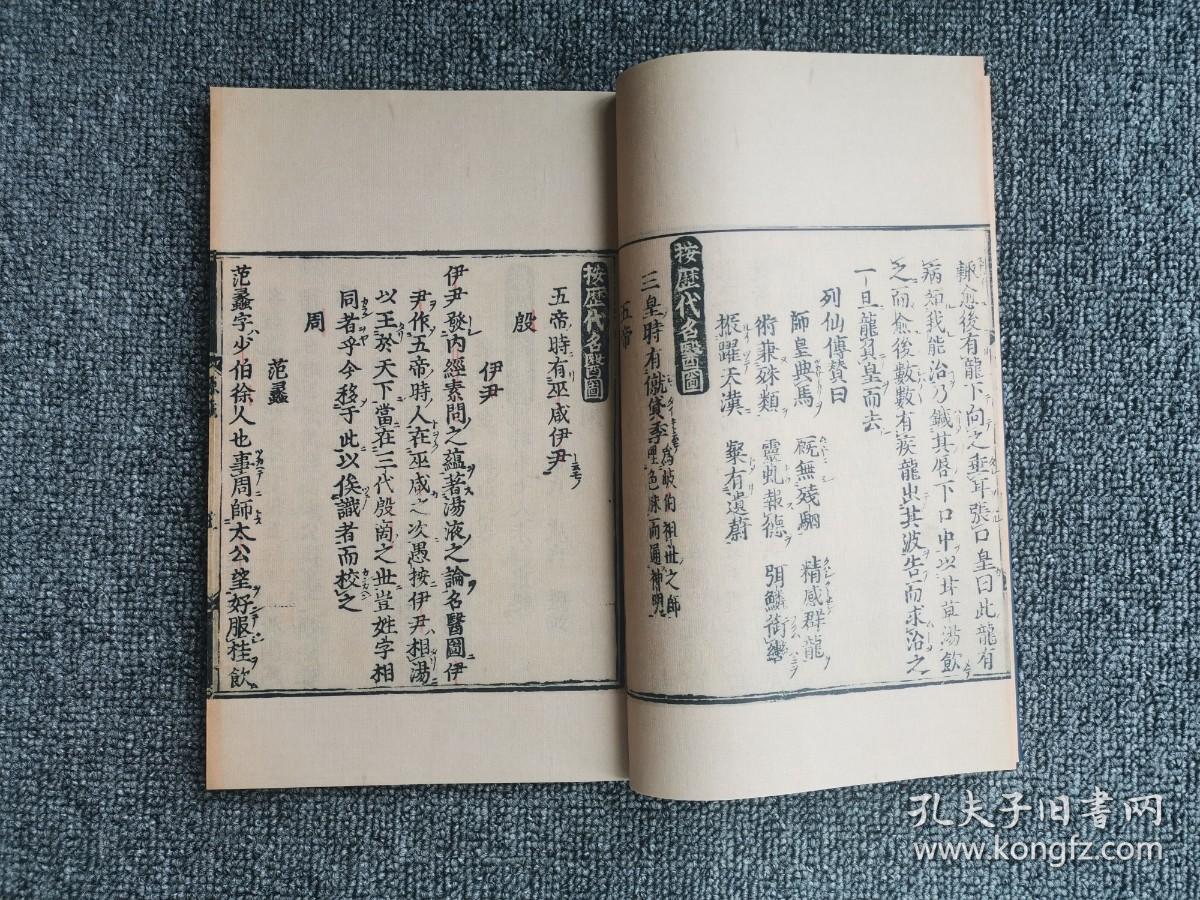 輙愈後有龍下向之垂耳張口皇曰此龍有
病知我能治乃鍼其唇下口中以甘草湯飲
之而愈後數數有疾龍出其波告而求治之
一旦龍負皇而去
列仙傳贊曰
師皇典馬 厩無殘駟 精感群龍
術兼殊類 靈虬報德 弭鱗銜轡
振躍天漢 粲有遺蔚
按歷代名醫圖
三皇時有僦貸季 為岐伯祖世之師 理色脉而通神明
五帝
按歷代名醫圖
五帝時有巫咸伊尹
殷
伊尹
伊尹發內經素問之蘊著湯液之論名醫圖伊
尹作五帝時人在巫咸之次愚按伊尹相湯
以王於天下當在三代殷商之世豈姓字相
同者乎今移于此以俟識者而校之
周
范蠡
范蠡字少伯徐人也事周師太公望好服桂飲
孔夫子旧书网
www.kongfz.com